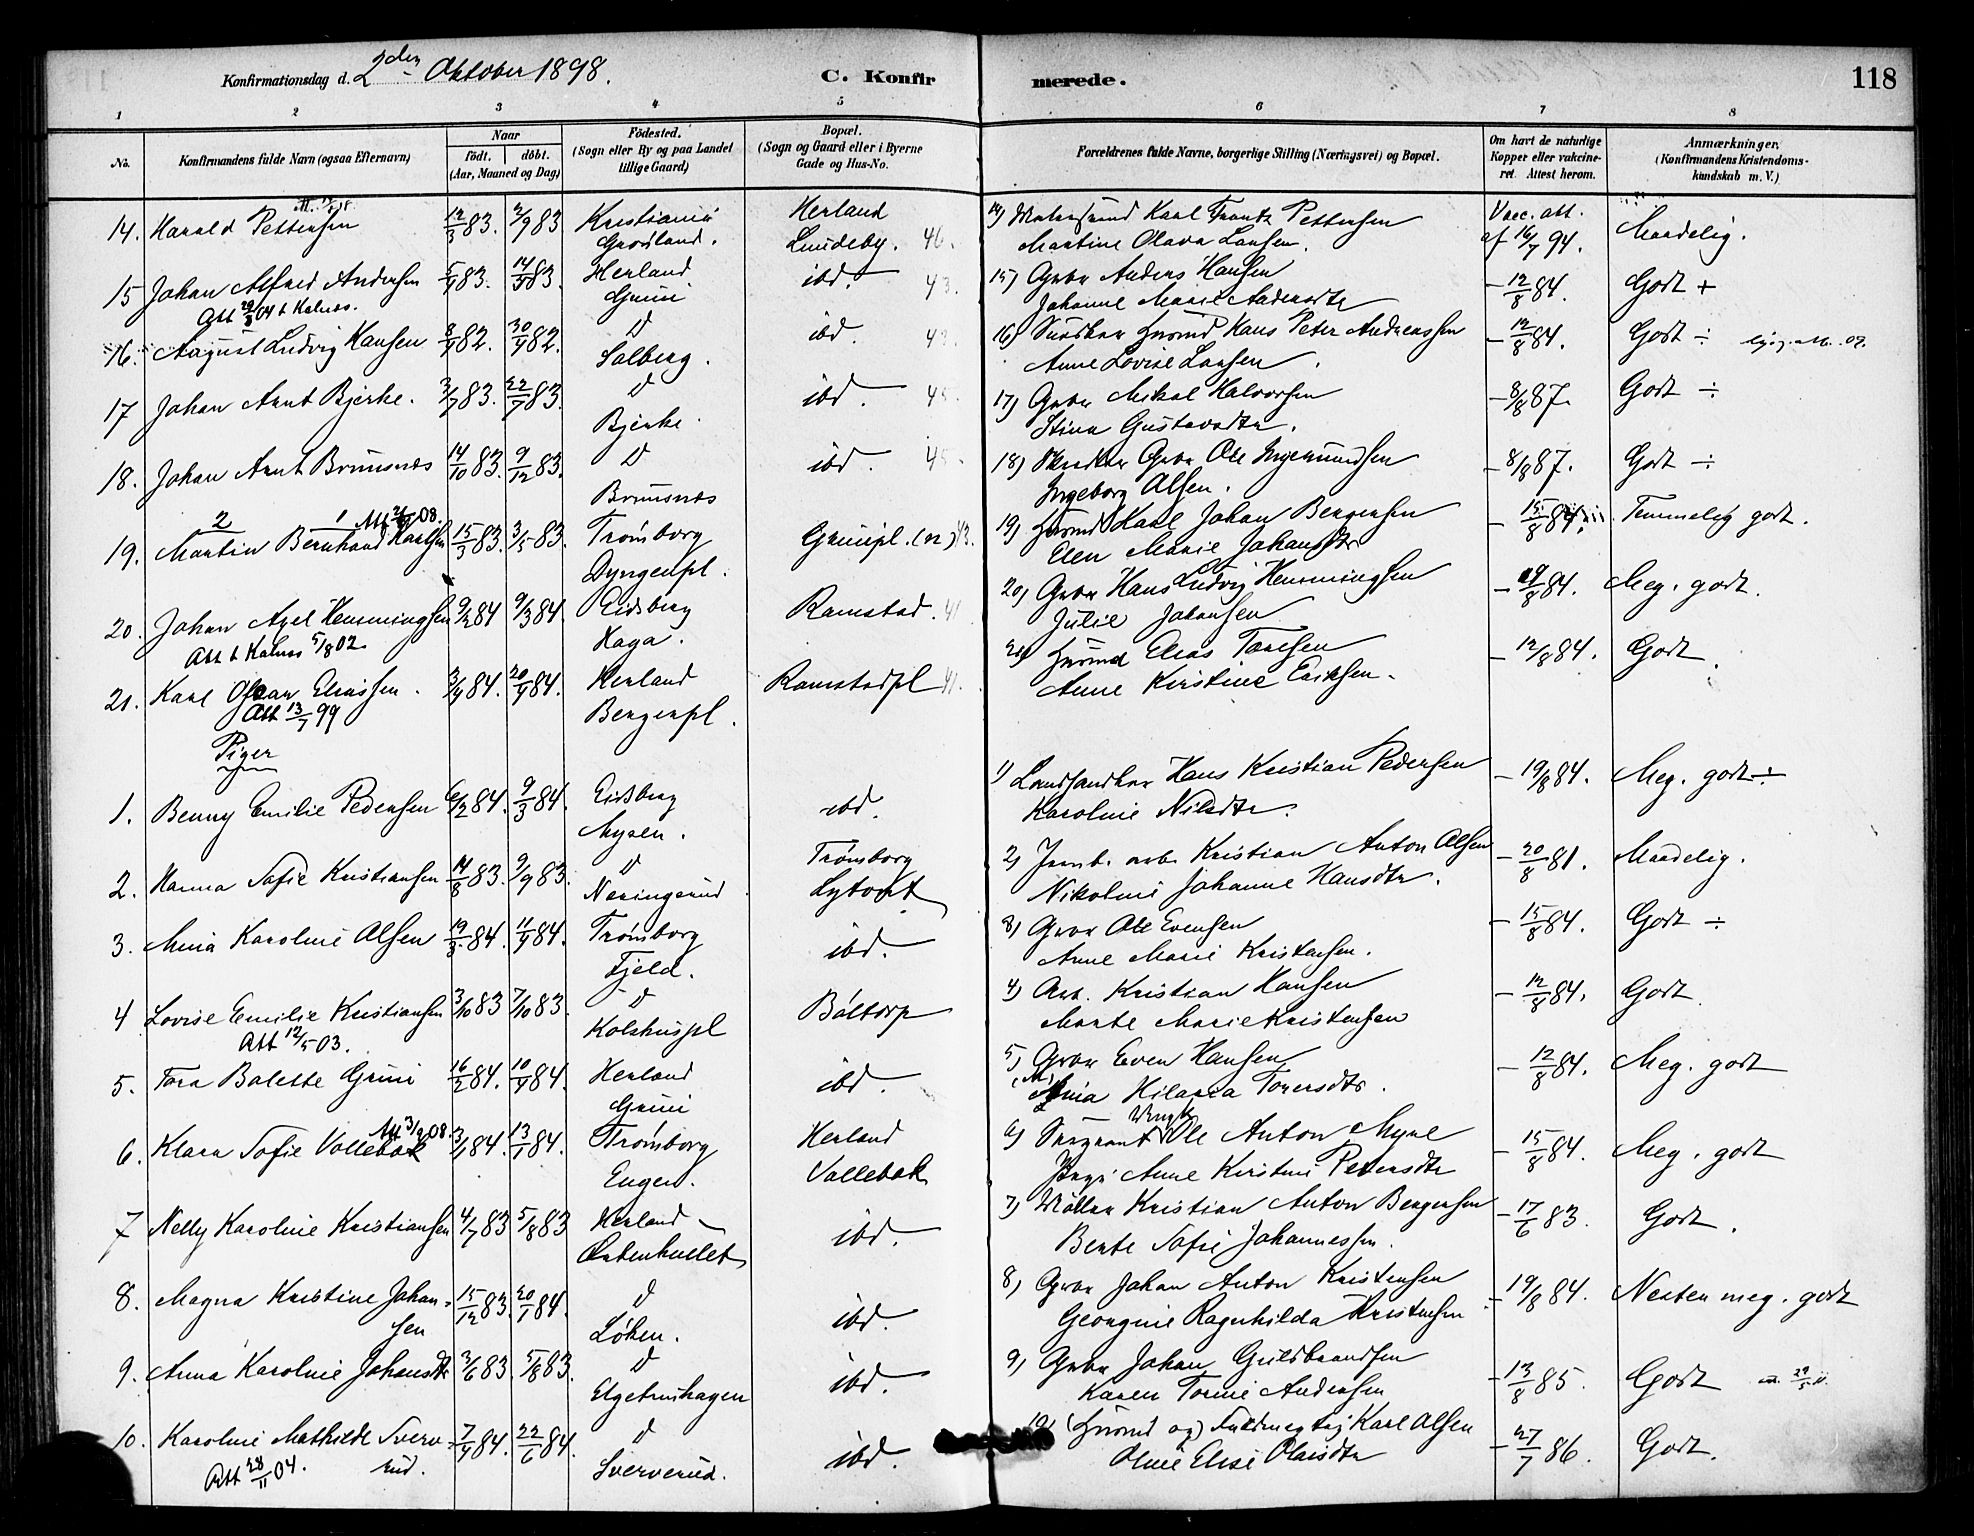 Konfirmationsdag d. 2den Oktober 1898.
C. Konfirmerede.
118
1 2 3 4 5 6 7 8
No.
Konfirmandens fulde Navn (ogsaa Efternavn)
Naar
födt. döbt.
(Aar, Maaned og Dag)
Födested.
(Sogn eller By og paa Landet
tillige Gaard)
Bopæl.
(Sogn og Gaard eller i Byerne
Gade og Hus-No.
Forældrenes fulde Navne, borgerlige Stilling (Næringsvei) og Bopæl.
Om havt de naturlige
Kopper eller vakcine-
ret. Attest herom.
Anmærkninger.
(Konfirmandens Kristendoms-
kundskab m. V.)
14. Harald Pettersen 12/3 83. 2/9 83 Kristiania Herland 14) Karl Frantz Pettersen Vacc. att. Maadelig.
Grönland. Lundeby. 46. Martine Olava Larsen. af 16/7 94.
15 Johan Alfred Andersen 5/9 83. 14/9 83. Herland ibd. 43. 15) Gbr Anders Hansen – 12/8 84. Godt +
Att 29/8 04 t Kalnes. Gruni Johanne Marie Andersdtr
16. August Ludvig Hansen 8/9 82. 30/9 82. D ibd. 16) Husmd Hans Peter Andreassen – 12/8 84. Godt ÷
Solberg. Anne Lovise Larsen.
17 Johan Arnt Bjerke. 3/7 83. 22/7 83. D ibd. 45. 17) Gbr Mikal Halvorsen – 8/8 87. Godt ÷
Bjerke. Stina Gustavsdtr.
18. Johan Arnt Brunsnæs 14/10 83. 9/12 83. D ibd. 45. 18) Skrædder Gbr Ole Ingemundsen – 8/8 87. Godt ÷
Brunsnæs Ingeborg Olsen.
2 1 Att 2/9 08.
19. Martin Bernhard Karlsen 15/3 83. 3/5 83. Trømborg Grunipl. (n) 43. 19) Husmd Karl Johan Bergersen – 15/8 84. Temmelig godt.
Dyngenpl. Elen Marie Johansdtr
20. Johan Axel Hemmingsen 9/2 84 9/3 84. Eidsberg Ramstad. 41 20) Gbr Hans Ludvig Hemmingsen – 19/8 84. Meg. godt.
Att t Kalnes 5/8 02 Haga. Julie Johansen
21. Karl Oskar Eliassen. 3/4 84. 20/4 84. Herland Ramstadpl 41. 21) Husmd Elias Torersen – 12/8 84. Godt.
Att 13/7 99 Bergerpl. Anne Kirstine Eriksen.
Piger
1. Benny Emilie Pedersen 6/2 84. 9/3 84. Eidsberg ibd. 1) Landhandler Hans Kristian Pedersen – 19/8 84. Meg. godt ÷
Mysen. Karoline Nilsdtr.
2. Hanna Sofie Kristiansen 14/8 83. 9/9 83. D Trømborg 2) Jernb. arb. Kristian Anton Olsen – 20/8 81. Maadelig.
Næringsrud Lytomt Nikoline Johanne Hansdtr.
3. Mina Karoline Olsen 19/3 84. 11/4 84. Trømborg ibd. 3) Gbr Ole Evensen – 15/8 84. Godt ÷
Fjeld. Anne Marie Kristensen.
4 Lovise Emilie Kristiansen 3/10 83 7/10 83. D Böltorp 4) Arb. Kristian Hansen – 12/8 84. Godt.
Att 12/5 03. Kolshuspl Marte Marie Kristensen
5. Tora Bolette Gruni 16/2 84. 10/4 84. Herland ibd. 5) Gbr Even Hansen – 12/8 84. Meg. godt
Gruni Hilaria Torersdtr.
6. Klara Sofie Vollebæk 3/1 84. 13/1 84. Trømborg Herland 6) Sergeant Ole Anton Myrle – 15/8 84. Meg. godt
Att 3/2 08. Engen. Vollebæk Pige Anne Kirstine Petersdtr
7 Nelly Karoline Kristiansen 4/7 83. 5/8 83 Herland ibd. 7) Möller Kristian Anton Bergersen – 17/6 83. Godt.
Bente Sofie Johannessen.
8. Magna Kristine Johan- 15/12 83. 20/1 84. D ibd. 8) Gbr Johan Anton Kristensen – 19/8 84. Nesten meg. godt
sen Løken. Georgine Ragnhilda Kristensen
9. Anna Karoline Johansdtr 3/6 83. 5/8 83. D ibd. 9) Gbr Johan Guldbrandsen – 13/8 85. Godt
Elgetunshagen Karen Torine Andersen
10. Karoline Mathilde Sverv- 7/4 84. 22/6 84. D ibd. 10) (Husmd og) Fuldmegtig Karl Olsen – 27/7 86. Godt.
Att 28/11 04. rud. Sververud. Oline Elise Olausdtr